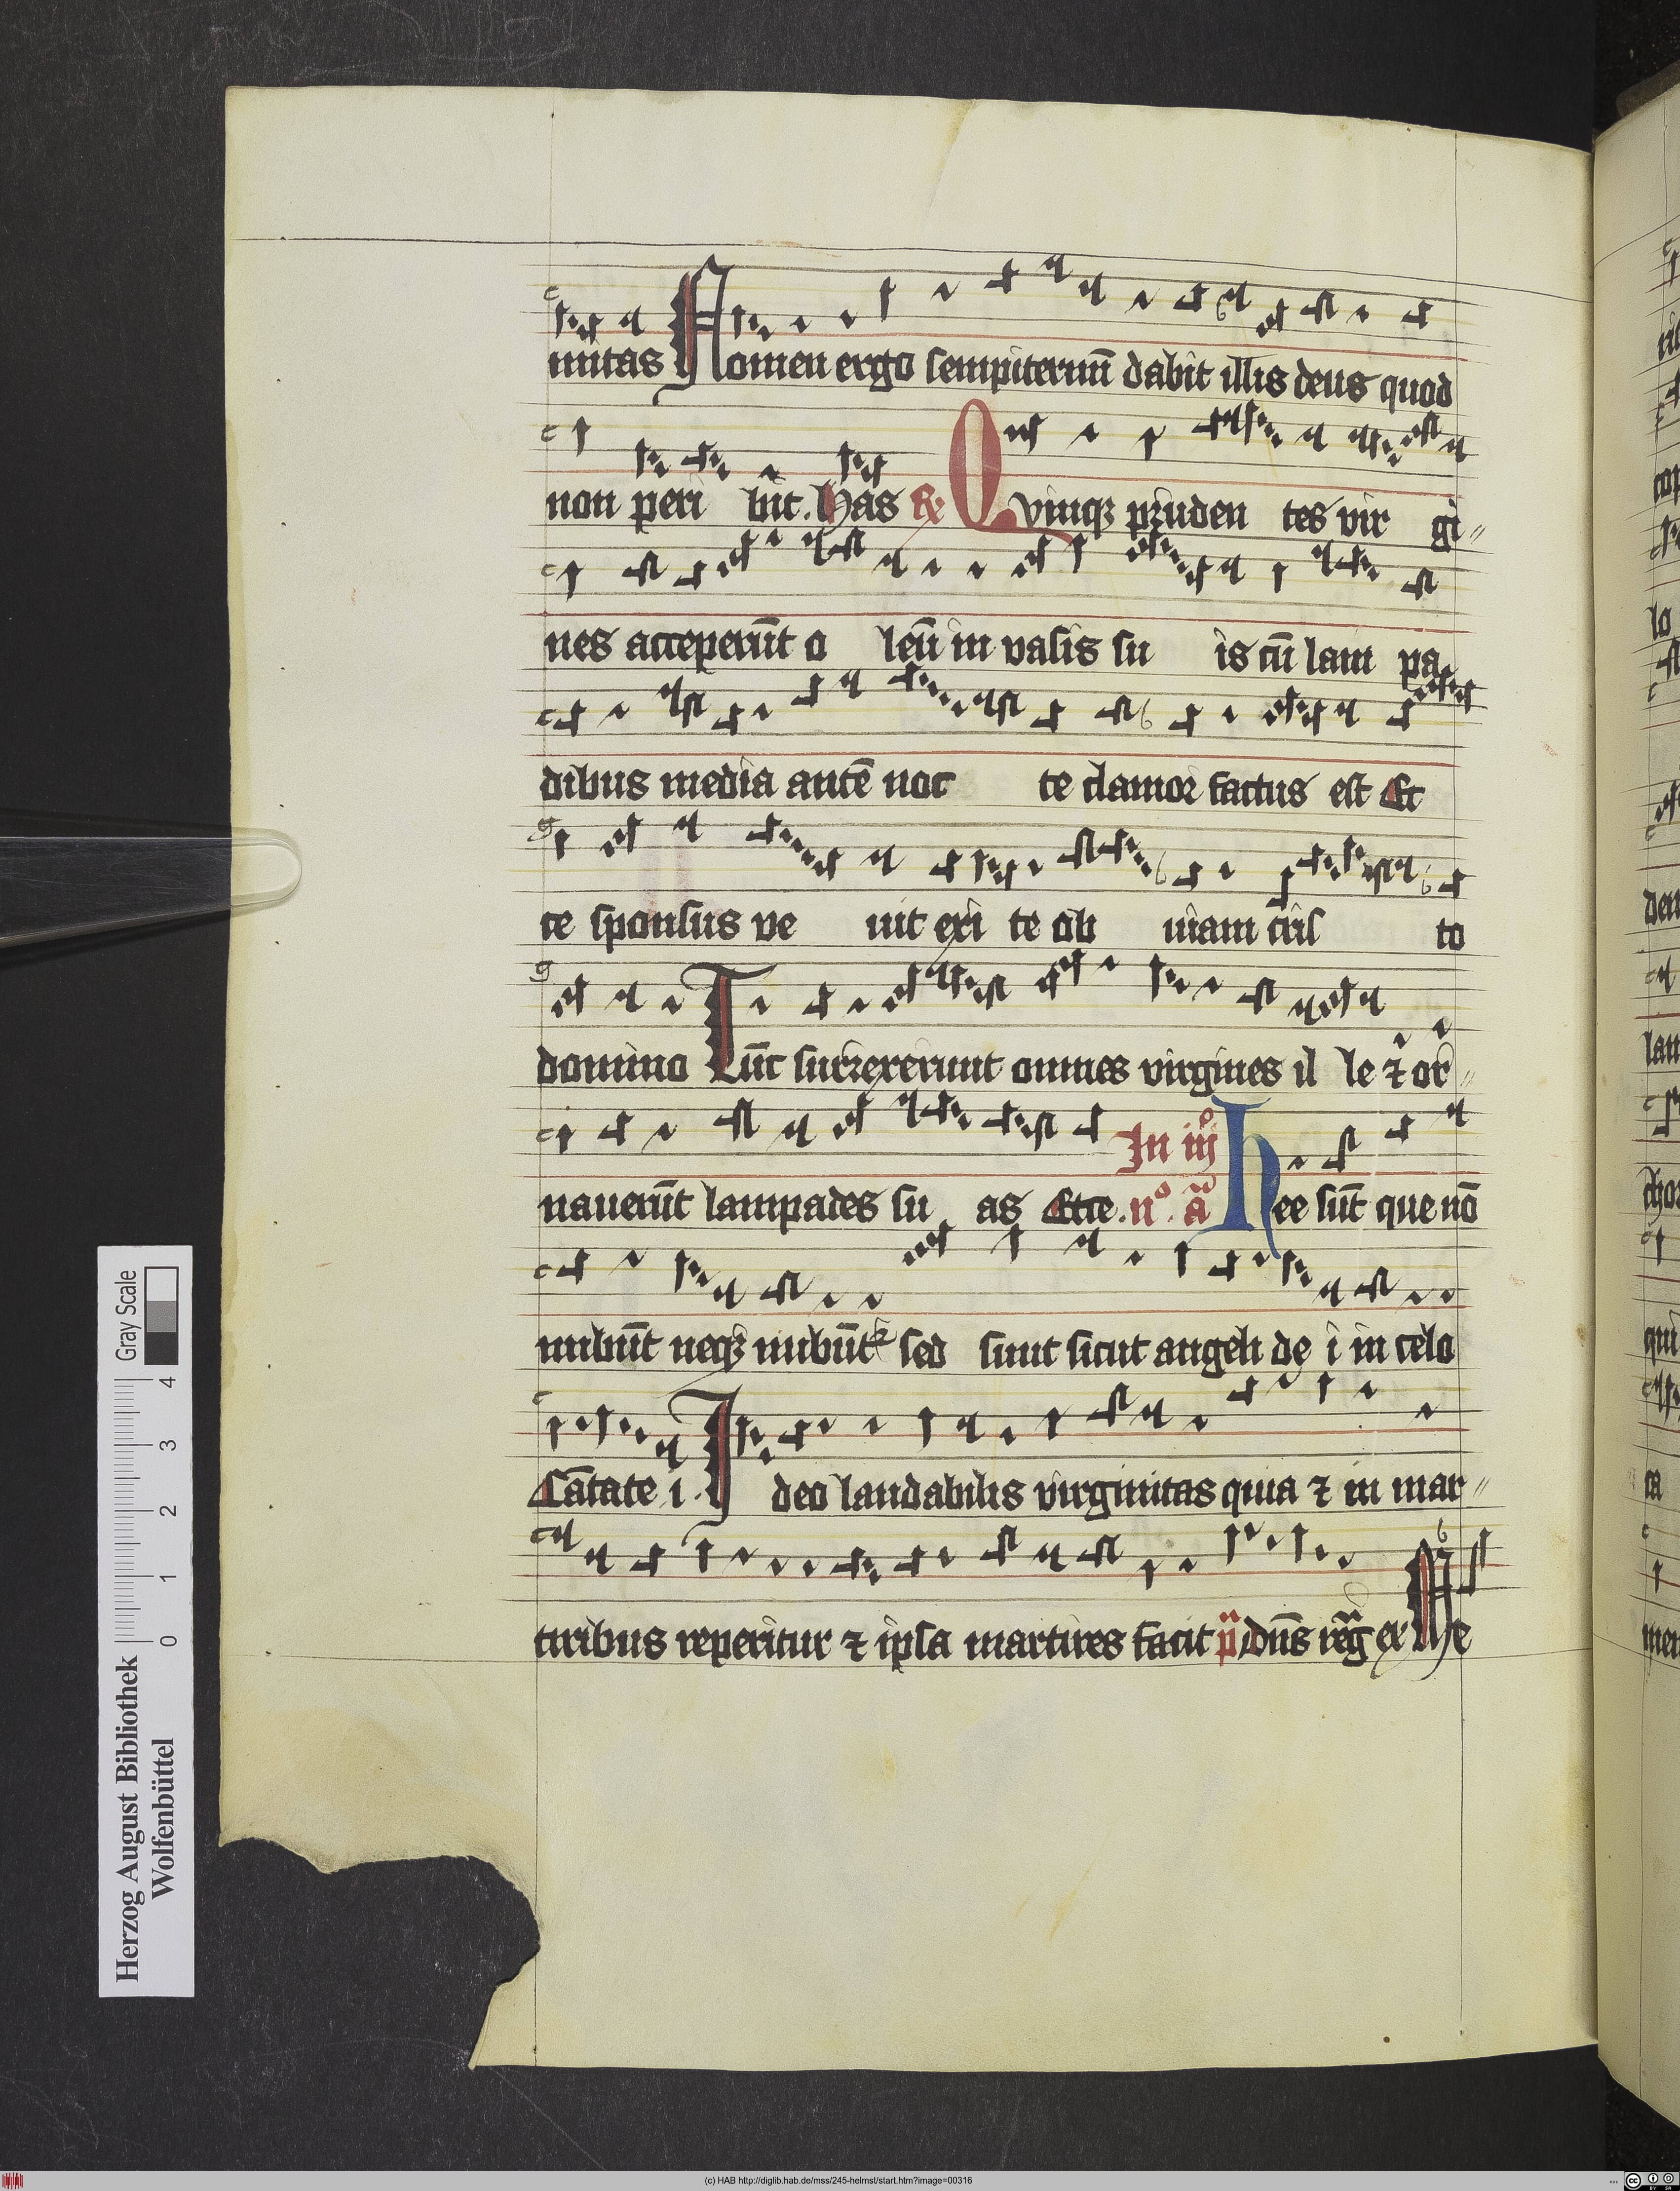 nitas Nomen ergo sempiternũ dabit illis deus quod
non peri bit. Has ℟ Qvinqꝫ pruden tes vir gi〃
nes acceperũt o leũ in vasis su is cũ lam pa
dibus media autẽ noc te clamor factus est Ec
ce sponsus ve nit exi te ob uiam cris to
domino Tũc surrexerunt omnes virgines il le ⁊ or〃
nauerũt lampades su as Ecce. In iijͦ nͦ. ã hee sũt que nõ
nubũt neqꝫ nubũt᷑ sed sunt sicut angeli de i in celo
Cãtate i. Ideo laudabilis virginitas quia ⁊ in mar〃
tiribus reperitur ⁊ ipsa martires facit p̃ dñs reg̃ ex Ne
Herzog August Bibliothek
Wolfenbüttel
Gray Scale
0 1 2 3 4
(c) HAB http://diglib.hab.de/mss/245-helmst/start.htm?image=00316